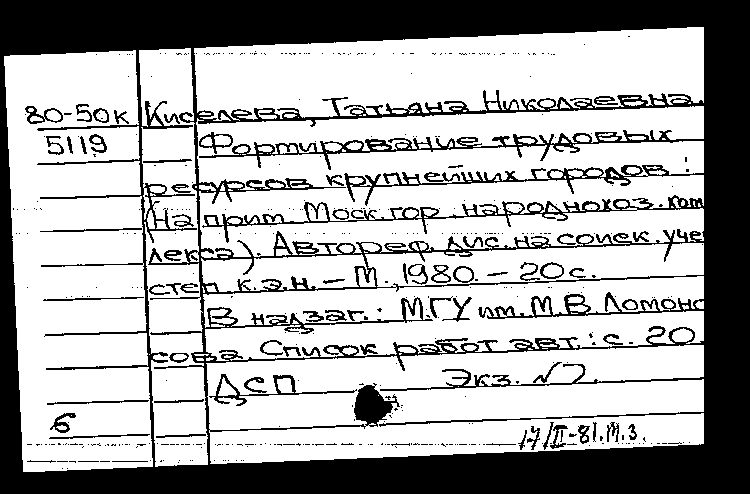 80-50к Киселева, Татьяна Николаевна.
5119 Формирование трудовых
ресурсов крупнейших городов :
(На прим. Моск. гор. народнохоз. комп
лекса). Автореф. дис. на соиск. учен
степ. к.э.н. – М., 1980. – 20 с.
В надзаг.: МГУ им. М.В. Ломоно
сова. Список работ авт.: с. 20.
ДСП Экз. №
б
17/II-81. М.З.